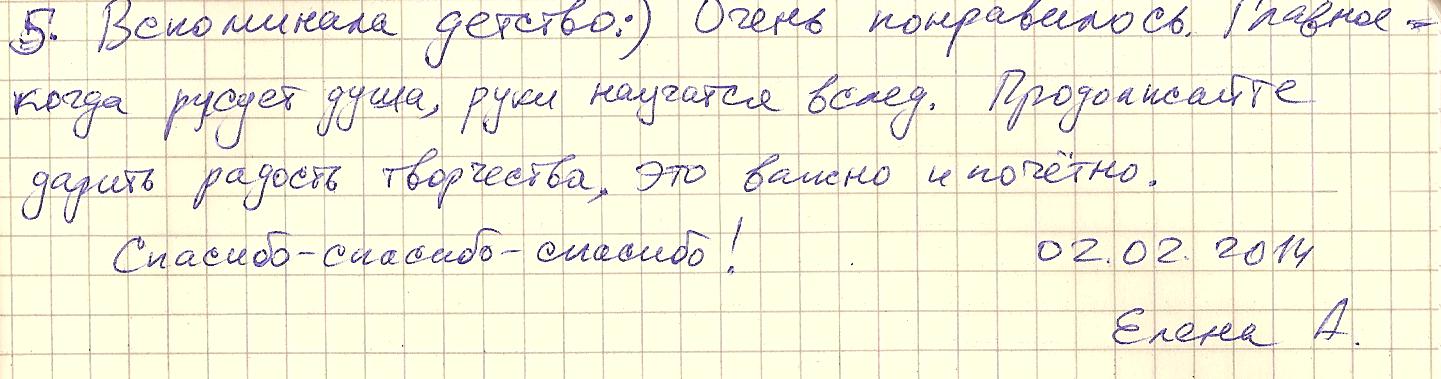 5. Вспоминала детство:) Очень понравилось. Главное -
когда рисует душа, руки научатся вслед. Продолжайте
дарить радость творчества, это важно и почётно.
Спасибо-спасибо-спасибо! 02.02.2014
Елена А.